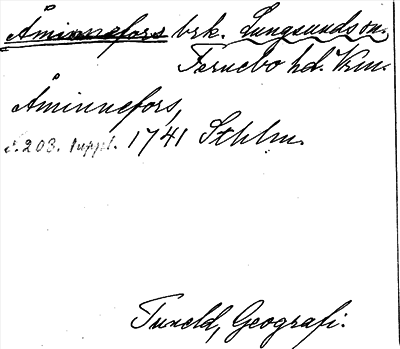 Åminnefors brk. Lungsunds sn.
Fernebo hd. Vrm.
Åminnefors,
s. 203. suppl. 1741 Sthlm.
Tuneld, Geografi.